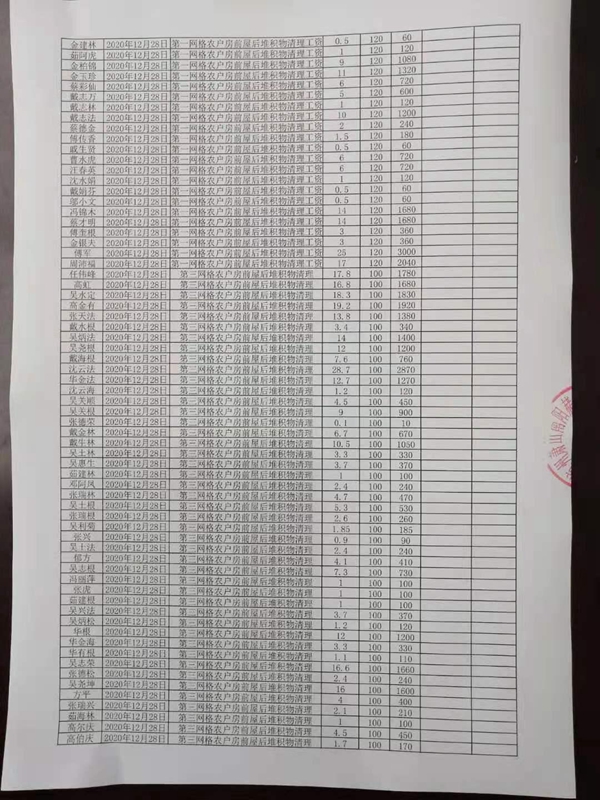 金建林 2020年12月28日 第一网格农户房前屋后堆积物清理工资 0.5 120 60
茹阿虎 2020年12月28日 第一网格农户房前屋后堆积物清理工资 1 120 120
金柏锦 2020年12月28日 第一网格农户房前屋后堆积物清理工资 9 120 1080
金玉珍 2020年12月28日 第一网格农户房前屋后堆积物清理工资 11 120 1320
蔡彩仙 2020年12月28日 第一网格农户房前屋后堆积物清理工资 6 120 720
戴志万 2020年12月28日 第一网格农户房前屋后堆积物清理工资 5 120 600
戴志林 2020年12月28日 第一网格农户房前屋后堆积物清理工资 1 120 120
戴志法 2020年12月28日 第一网格农户房前屋后堆积物清理工资 10 120 1200
蔡德金 2020年12月28日 第一网格农户房前屋后堆积物清理工资 2 120 240
傅传香 2020年12月28日 第一网格农户房前屋后堆积物清理工资 1.5 120 180
戚生贤 2020年12月28日 第一网格农户房前屋后堆积物清理工资 0.5 120 60
曹水虎 2020年12月28日 第一网格农户房前屋后堆积物清理工资 6 120 720
汪春英 2020年12月28日 第一网格农户房前屋后堆积物清理工资 6 120 720
沈水娟 2020年12月28日 第一网格农户房前屋后堆积物清理工资 1 120 120
戴娟芬 2020年12月28日 第一网格农户房前屋后堆积物清理工资 0.5 120 60
邬小文 2020年12月28日 第一网格农户房前屋后堆积物清理工资 0.5 120 60
冯锦木 2020年12月28日 第一网格农户房前屋后堆积物清理工资 14 120 1680
蔡才明 2020年12月28日 第一网格农户房前屋后堆积物清理工资 14 120 1680
傅奎根 2020年12月28日 第一网格农户房前屋后堆积物清理工资 3 120 360
金银夫 2020年12月28日 第一网格农户房前屋后堆积物清理工资 3 120 360
傅军 2020年12月28日 第一网格农户房前屋后堆积物清理工资 25 120 3000
周沛福 2020年12月28日 第一网格农户房前屋后堆积物清理工资 17 120 2040
任伟峰 2020年12月28日 第三网格农户房前屋后堆积物清理 17.8 100 1780
高虹 2020年12月28日 第三网格农户房前屋后堆积物清理 16.8 100 1680
吴水定 2020年12月28日 第三网格农户房前屋后堆积物清理 18.3 100 1830
高金有 2020年12月28日 第三网格农户房前屋后堆积物清理 19.2 100 1920
张天法 2020年12月28日 第三网格农户房前屋后堆积物清理 13.8 100 1380
戴水根 2020年12月28日 第三网格农户房前屋后堆积物清理 3.4 100 340
吴炳法 2020年12月28日 第三网格农户房前屋后堆积物清理 14 100 1400
吴尧根 2020年12月28日 第三网格农户房前屋后堆积物清理 12 100 1200
戴海根 2020年12月28日 第三网格农户房前屋后堆积物清理 7.6 100 760
沈云法 2020年12月28日 第三网格农户房前屋后堆积物清理 28.7 100 2870
华金法 2020年12月28日 第三网格农户房前屋后堆积物清理 12.7 100 1270
沈云海 2020年12月28日 第三网格农户房前屋后堆积物清理 1.2 100 120
吴关顺 2020年12月28日 第三网格农户房前屋后堆积物清理 4.5 100 450
吴关根 2020年12月28日 第三网格农户房前屋后堆积物清理 9 100 900
张德荣 2020年12月28日 第三网格农户房前屋后堆积物清理 0.1 100 10
戴金林 2020年12月28日 第三网格农户房前屋后堆积物清理 6.7 100 670
戴生林 2020年12月28日 第三网格农户房前屋后堆积物清理 10.5 100 1050
吴土林 2020年12月28日 第三网格农户房前屋后堆积物清理 3.3 100 330
吴惠生 2020年12月28日 第三网格农户房前屋后堆积物清理 3.7 100 370
茹建林 2020年12月28日 第三网格农户房前屋后堆积物清理 1 100 100
邓阿凤 2020年12月28日 第三网格农户房前屋后堆积物清理 2.4 100 240
张瑞林 2020年12月28日 第三网格农户房前屋后堆积物清理 4.7 100 470
吴土根 2020年12月28日 第三网格农户房前屋后堆积物清理 5.3 100 530
张瑞根 2020年12月28日 第三网格农户房前屋后堆积物清理 2.6 100 260
吴利菊 2020年12月28日 第三网格农户房前屋后堆积物清理 1.85 100 185
张兴 2020年12月28日 第三网格农户房前屋后堆积物清理 0.9 100 90
吴土法 2020年12月28日 第三网格农户房前屋后堆积物清理 2.4 100 240
郁方 2020年12月28日 第三网格农户房前屋后堆积物清理 4.1 100 410
吴志根 2020年12月28日 第三网格农户房前屋后堆积物清理 7.3 100 730
冯丽萍 2020年12月28日 第三网格农户房前屋后堆积物清理 1 100 100
张虎 2020年12月28日 第三网格农户房前屋后堆积物清理 1 100 100
茹建根 2020年12月28日 第三网格农户房前屋后堆积物清理 1 100 100
吴兴法 2020年12月28日 第三网格农户房前屋后堆积物清理 3.7 100 370
吴炳松 2020年12月28日 第三网格农户房前屋后堆积物清理 1.2 100 120
华根 2020年12月28日 第三网格农户房前屋后堆积物清理 12 100 1200
华金海 2020年12月28日 第三网格农户房前屋后堆积物清理 3.3 100 330
华有根 2020年12月28日 第三网格农户房前屋后堆积物清理 1.1 100 110
吴志荣 2020年12月28日 第三网格农户房前屋后堆积物清理 16.6 100 1660
张德松 2020年12月28日 第三网格农户房前屋后堆积物清理 2.4 100 240
吴尧坤 2020年12月28日 第三网格农户房前屋后堆积物清理 16 100 1600
方平 2020年12月28日 第三网格农户房前屋后堆积物清理 4 100 400
张瑞兴 2020年12月28日 第三网格农户房前屋后堆积物清理 2.1 100 210
茹海林 2020年12月28日 第三网格农户房前屋后堆积物清理 1 100 100
高尔庆 2020年12月28日 第三网格农户房前屋后堆积物清理 4.5 100 450
高伯庆 2020年12月28日 第三网格农户房前屋后堆积物清理 1.7 100 170